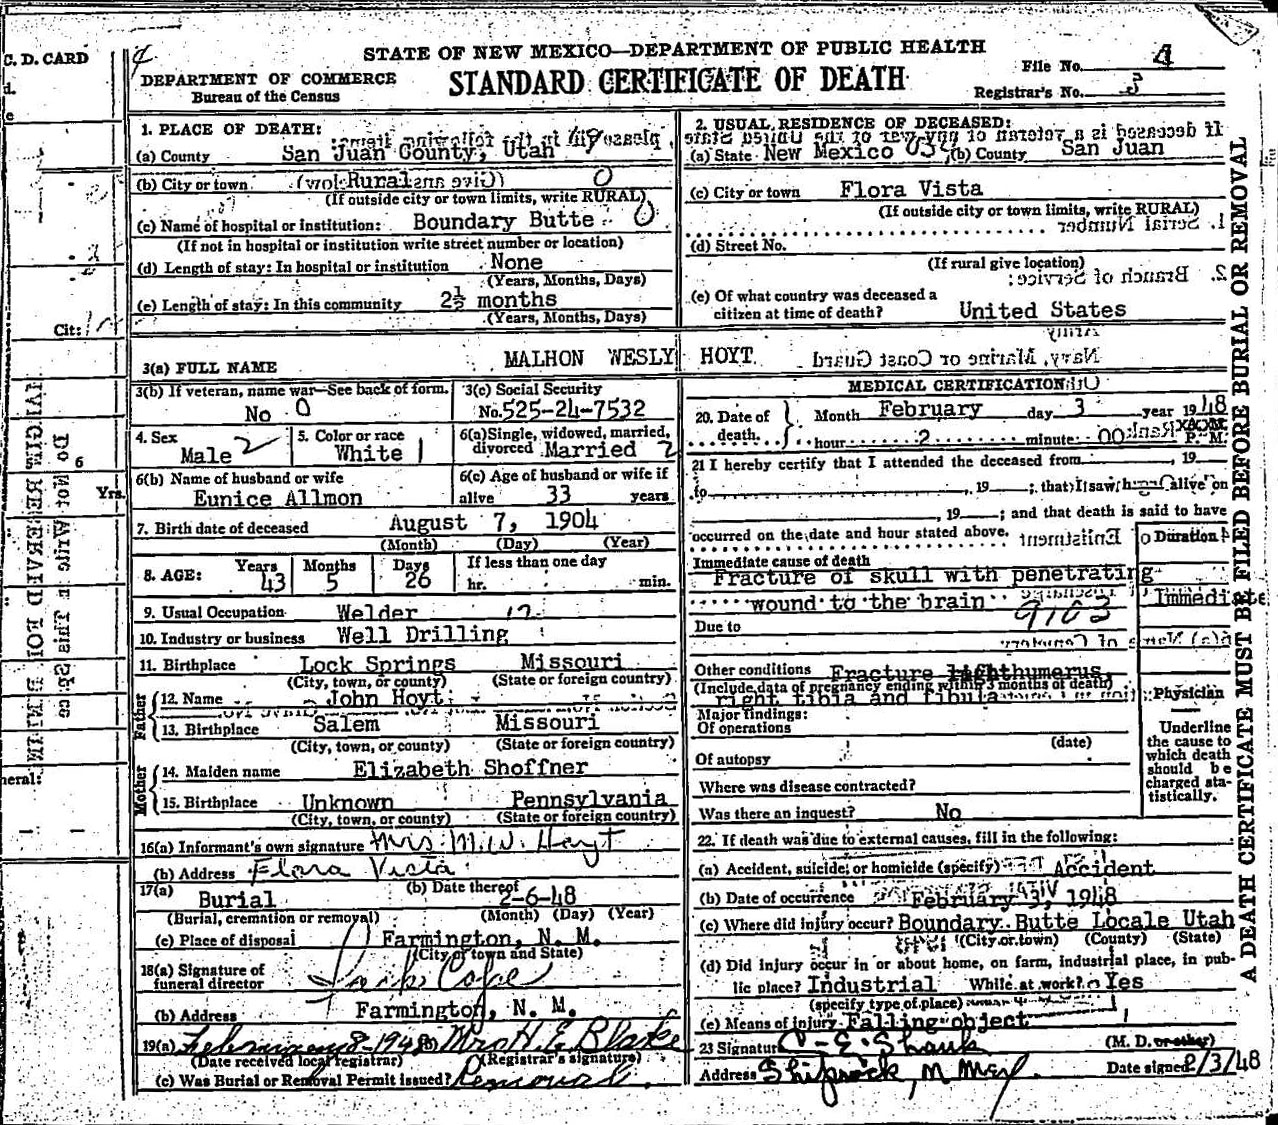 C. D. CARD
STATE OF NEW MEXICO—DEPARTMENT OF PUBLIC HEALTH
DEPARTMENT OF COMMERCE
Bureau of the Census
STANDARD CERTIFICATE OF DEATH
File No. 4
Registrar's No. 5
1. PLACE OF DEATH:
(a) County San Juan County, Utah
(b) City or town Rural
(If outside city or town limits, write RURAL)
(c) Name of hospital or institution: Boundary Butte
(If not in hospital or institution write street number or location)
(d) Length of stay: In hospital or institution None
(Years, Months, Days)
(e) Length of stay: In this community 2½ months
(Years, Months, Days)
2. USUAL RESIDENCE OF DECEASED:
(a) State New Mexico (b) County San Juan
(c) City or town Flora Vista
(If outside city or town limits, write RURAL)
(d) Street No.
(If rural give location)
(e) Of what country was deceased a
citizen at time of death? United States
3(a) FULL NAME MALHON WESLY HOYT
3(b) If veteran, name war—See back of form.
No 0
3(c) Social Security
No. 525-24-7532
4. Sex
Male 2
5. Color or race
White 1
6(a) Single, widowed, married,
divorced Married 2
6(b) Name of husband or wife
Eunice Allmon
6(c) Age of husband or wife if
alive 33 years
7. Birth date of deceased August 7, 1904
(Month) (Day) (Year)
8. AGE: Years 43 Months 5 Days 26 If less than one day
hr. min.
9. Usual Occupation Welder
10. Industry or business Well Drilling
11. Birthplace Lock Springs Missouri
(City, town, or county) (State or foreign country)
Father
12. Name John Hoyt
13. Birthplace Salem Missouri
(City, town, or county) (State or foreign country)
Mother
14. Maiden name Elizabeth Shoffner
15. Birthplace Unknown Pennsylvania
(City, town, or county) (State or foreign country)
16(a) Informant's own signature Mrs. M. W. Hoyt
(b) Address Flora Vista
17(a) Burial (b) Date thereof 2-6-48
(Burial, cremation or removal) (Month) (Day) (Year)
(c) Place of disposal Farmington, N. M.
(City or town and State)
18(a) Signature of
funeral director Cope
(b) Address Farmington, N. M.
19(a) February 8-1948 (b) Mrs H. E. Blake
(Date received local registrar) (Registrar's signature)
(c) Was Burial or Removal Permit issued? Removal.
MEDICAL CERTIFICATION
20. Date of
death. Month February day 3 year 1948
hour 2 minute 00 P. M.
21 I hereby certify that I attended the deceased from , 19
to , 19 ; that I saw h alive on
, 19 ; and that death is said to have
occurred on the date and hour stated above.
Duration
Immediate cause of death
Fracture of skull with penetrating
wound to the brain Immediate
9103
Due to
Other conditions Fracture humerus,
(Include data of pregnancy ending within 3 months of death)
right tibia and fibula
Major findings:
Of operations
(date)
Of autopsy
Where was disease contracted?
Was there an inquest? No
Physician
Underline
the cause to
which death
should be
charged sta-
tistically.
22. If death was due to external causes, fill in the following:
(a) Accident, suicide, or homicide (specify) Accident
(b) Date of occurrence February 3, 1948
(c) Where did injury occur? Boundary Butte Locale Utah
(City or town) (County) (State)
(d) Did injury occur in or about home, on farm, industrial place, in pub-
lic place? Industrial While at work? Yes
(specify type of place)
(e) Means of injury Falling object
23 Signature C. E. Shank (M. D. or other)
Address Shiprock, N Mex. Date signed 2/3/48
A DEATH CERTIFICATE MUST BE FILED BEFORE BURIAL OR REMOVAL
Do Not Write in This Space
Cit:
Yrs.
neral: